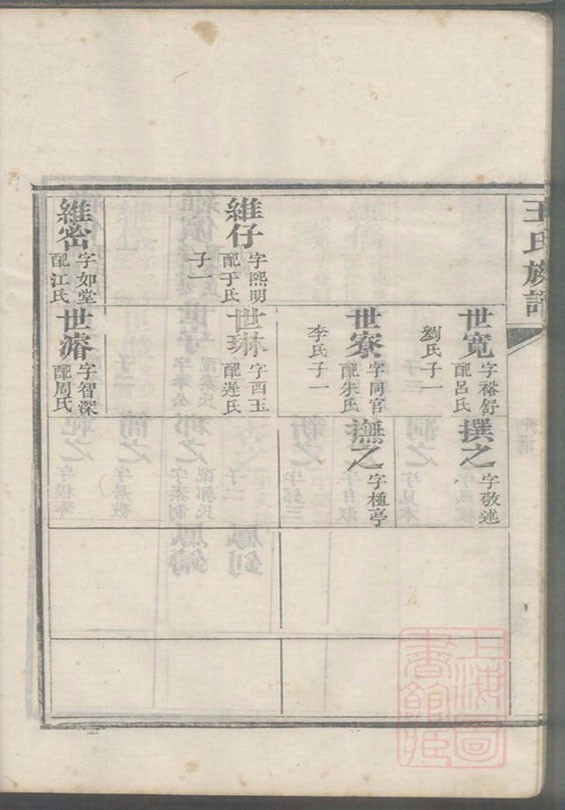 王氏族譜
世寬 字裕舒 配呂氏 劉氏子一
撰之 字敬述
世寮 字同官 配朱氏 李氏子一
撫之 字植亭
維仔 字熙明 配于氏 子一
世琳 字酉玉 配遲氏
維密 字如堂 配江氏
世濬 字智深 配周氏
上海圖書館藏